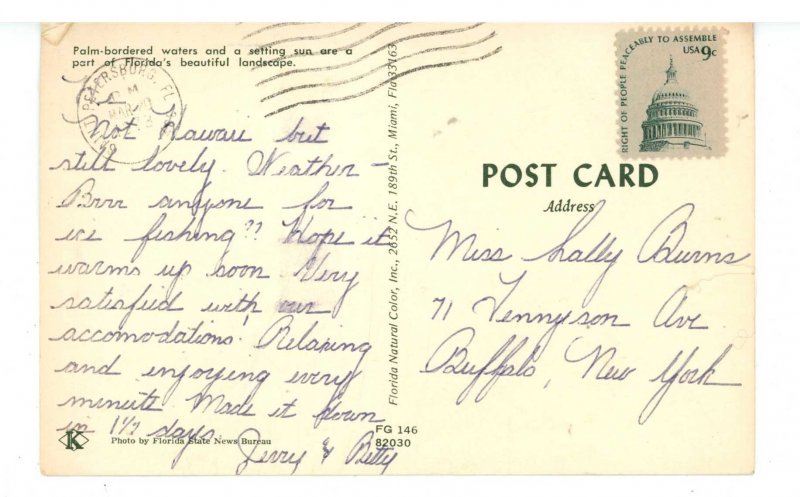 Palm-bordered waters and a setting sun are a
part of Florida's beautiful landscape.
SAINT PETERSBURG, FL
PM
MAR
Not Hawaii but
still lovely. Weather –
Brrr anyone for
ice fishing?? Hope it
warms up soon Very
satisfied with our
accomodations! Relaxing
and enjoying every
minute Made it down
in 1½ days.
Jerry & Betty
K
Photo by Florida State News Bureau
Florida Natural Color, Inc., 2652 N.E. 189th St., Miami, Fla 33163
FG 146
82030
RIGHT OF PEOPLE PEACEABLY TO ASSEMBLE
USA 9c
POST CARD
Address
Miss Sally Burns
71 Tennyson Ave
Buffalo, New York